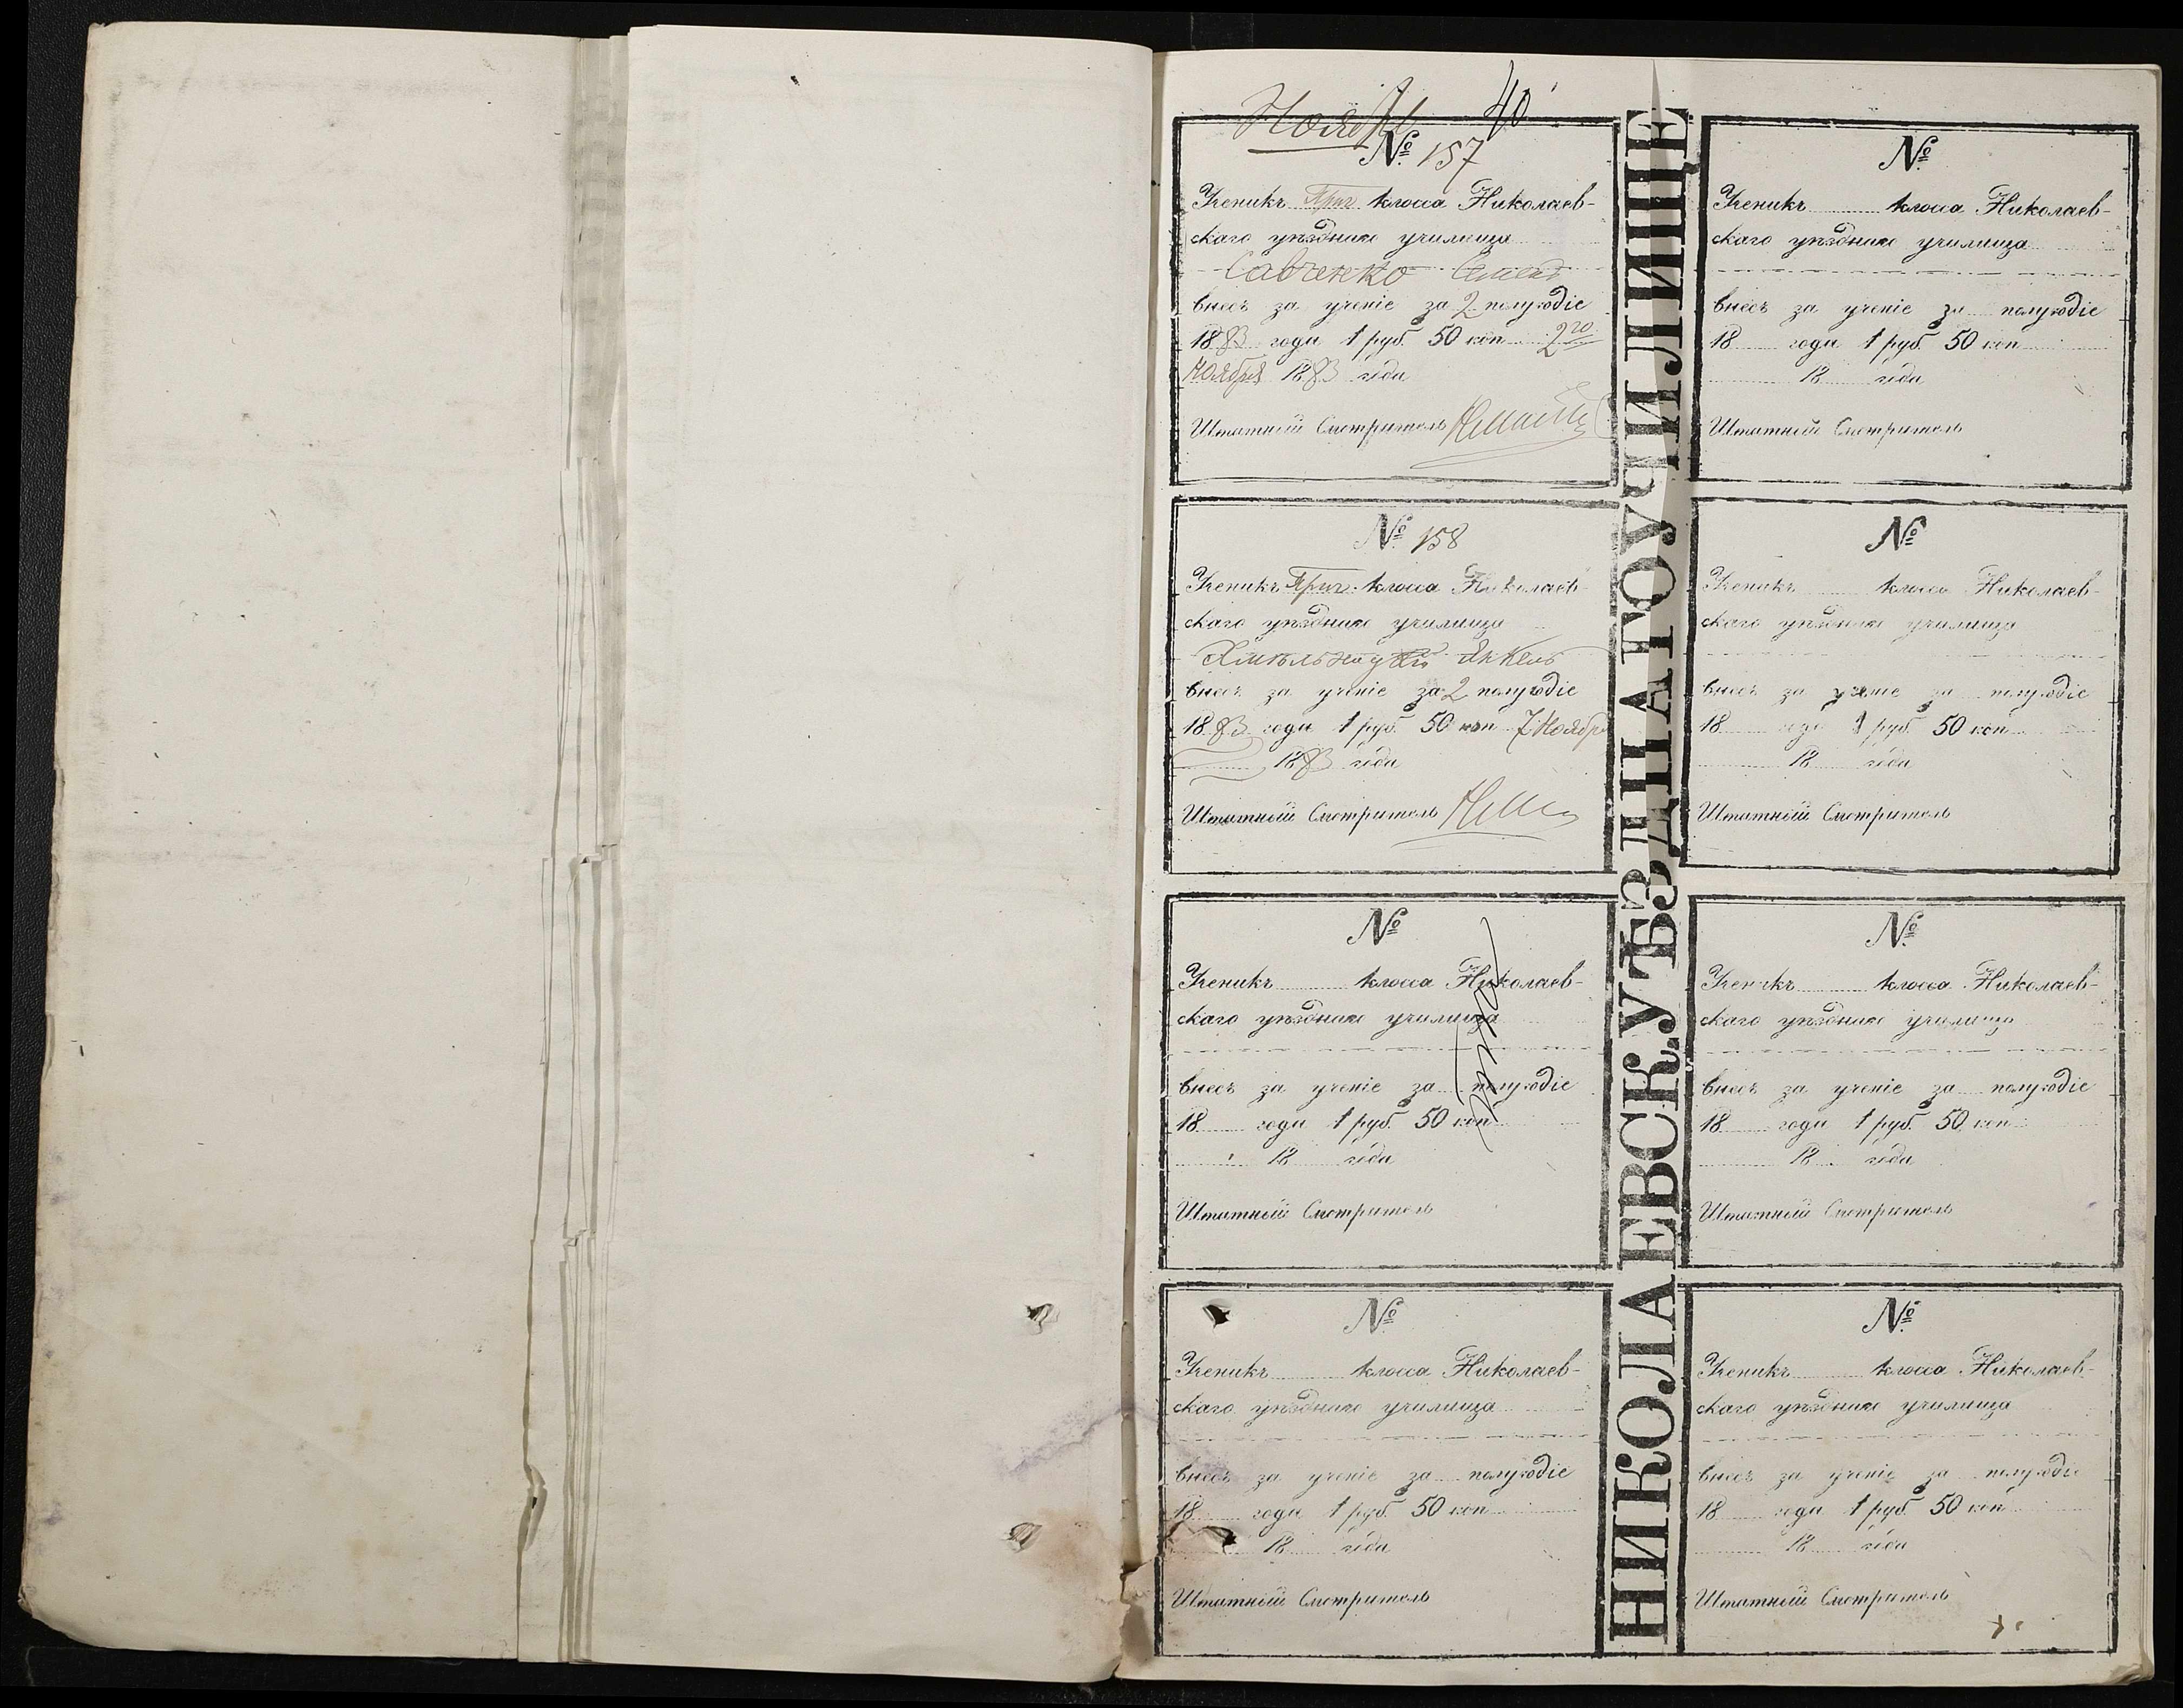 Ноябрь 40
№ 157
Ученикъ Приг. класса Николаев-
скаго уѣзднаго училища
Савченко Семенъ
внесъ за ученіе за 2 полугодіе
1883 года 1 руб. 50 коп. 2го
Ноября 1883 года
Штатный Смотритель
№ 158
Ученикъ Приг. класса Николаев-
скаго уѣзднаго училища
Хмѣльницкій Янкель
внесъ за ученіе за 2 полугодіе
1883 года 1 руб. 50 коп. 7 Ноября
1883 года
Штатный Смотритель
№
Ученикъ класса Николаев-
скаго уѣзднаго училища
внесъ за ученіе за полугодіе
18 года 1 руб. 50 коп.
18 года
Штатный Смотритель
№
Ученикъ класса Николаев-
скаго уѣзднаго училища
внесъ за ученіе за полугодіе
18 года 1 руб. 50 коп.
18 года
Штатный Смотритель
НИКОЛАЕВСК.УѢЗДНАГОУЧИЛИЩЕ
№
Ученикъ класса Николаев-
скаго уѣзднаго училища
внесъ за ученіе за полугодіе
18 года 1 руб. 50 коп.
18 года
Штатный Смотритель
№
Ученикъ класса Николаев-
скаго уѣзднаго училища
внесъ за ученіе за полугодіе
18 года 1 руб. 50 коп.
18 года
Штатный Смотритель
№
Ученикъ класса Николаев-
скаго уѣзднаго училища
внесъ за ученіе за полугодіе
18 года 1 руб. 50 коп.
18 года
Штатный Смотритель
№
Ученикъ класса Николаев-
скаго уѣзднаго училища
внесъ за ученіе за полугодіе
18 года 1 руб. 50 коп.
18 года
Штатный Смотритель